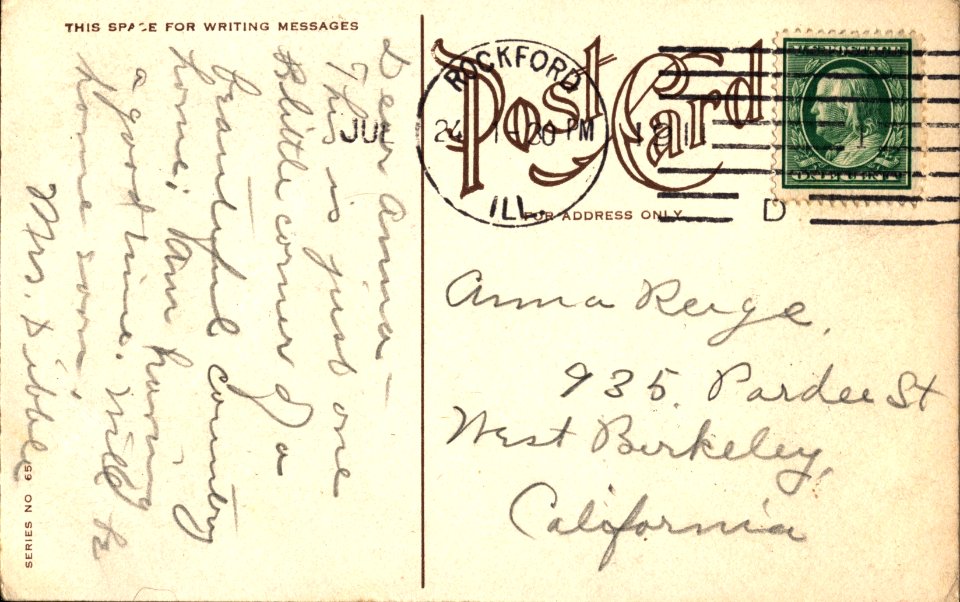 THIS SPACE FOR WRITING MESSAGES
Dear Anna—
This is just one
little corner of a
beautiful country
home; I am having
a good time. Will be
home soon.
Mrs. Dibble
SERIES NO 65
Post Card
FOR ADDRESS ONLY
ROCKFORD
JUL 24 1-20 PM 1911
ILL.
D
Anna
935. Pardee St
West Berkeley,
California